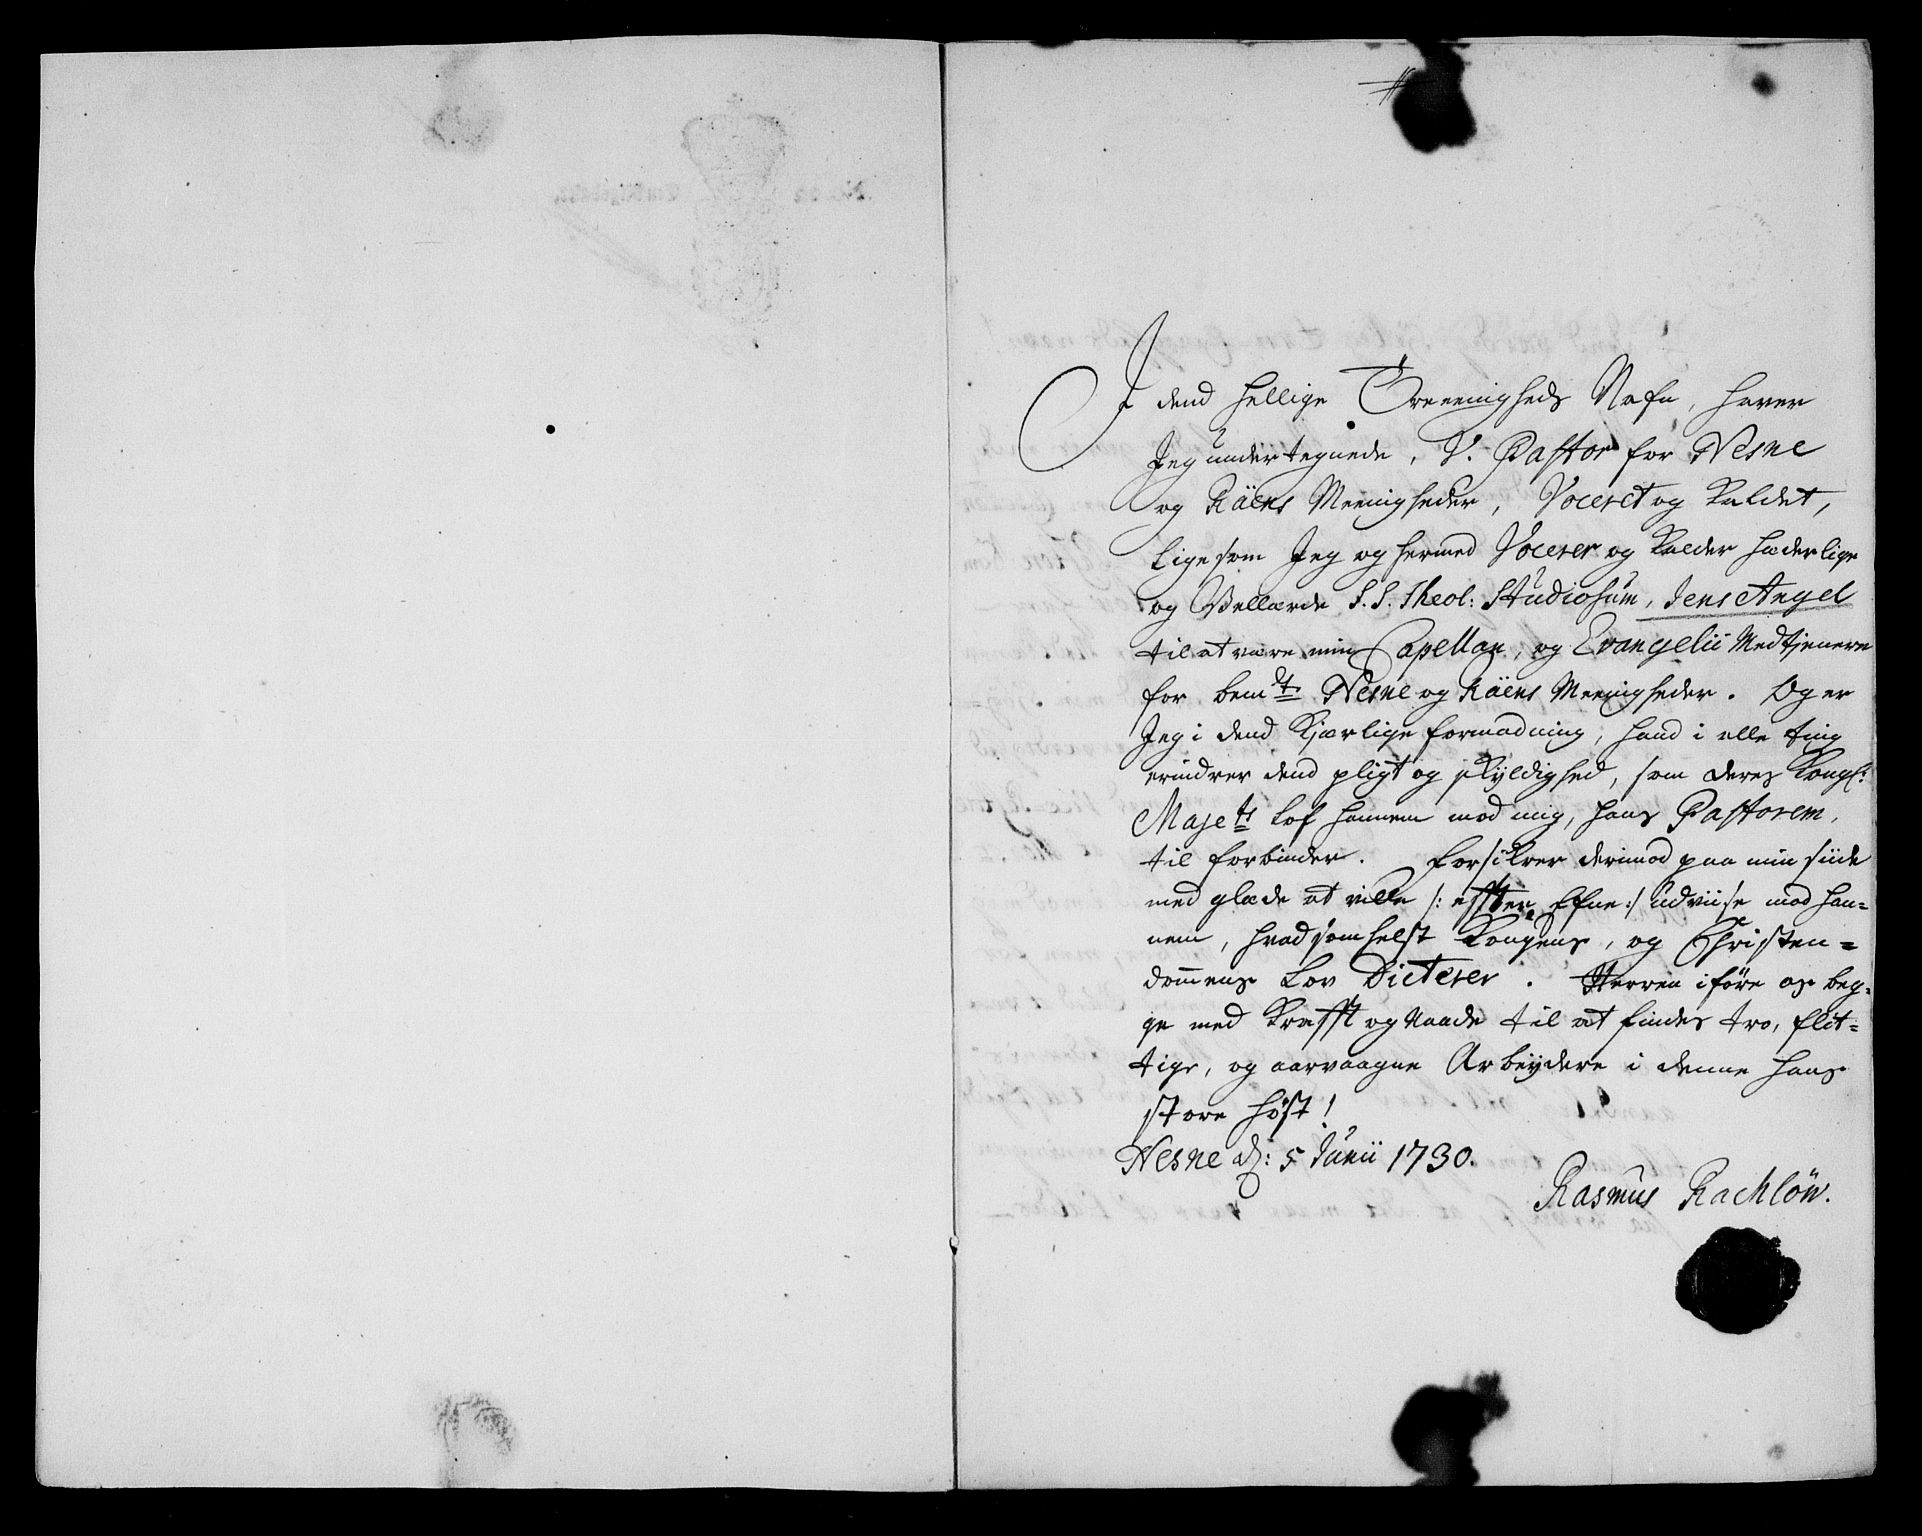 I dend hellige Treeenigheds Nafn, haver
Jeg undertegnede, V. Pastor for Nesne
og Räens Meenigheder, Voceret og kaldet,
ligesom Jeg og hermed Vocerer og kalder hæderlige
og Vellærde S. S. Theol: Studiosum, Jens Angel
til at være min Capellan, og Evangelii Medtjenere
for bemte Nesne og Räens Meenigheder. Og er
Jeg i dend kjærlige formodning, hand i alle ting
erindrer dend pligt og skyldighed, som deres Kongl:
Majets Lof hannem mod mig, hans Pastorem,
til forbinder. Forsikrer derimod paa min siide
med glæde at ville /: effter Efne :/ udviise mod han=
nem, hvadsomhelst Kongens, og Christen=
dommens Lov Dicterer. Herren iføre os beg=
ge med Krafft og Naade til at findes tro, flit=
tige, og aarvaagne Arbeydere i denne hans
store Høst!
Nesne d: 5 Junii 1730.
Rasmus Rachlöw.